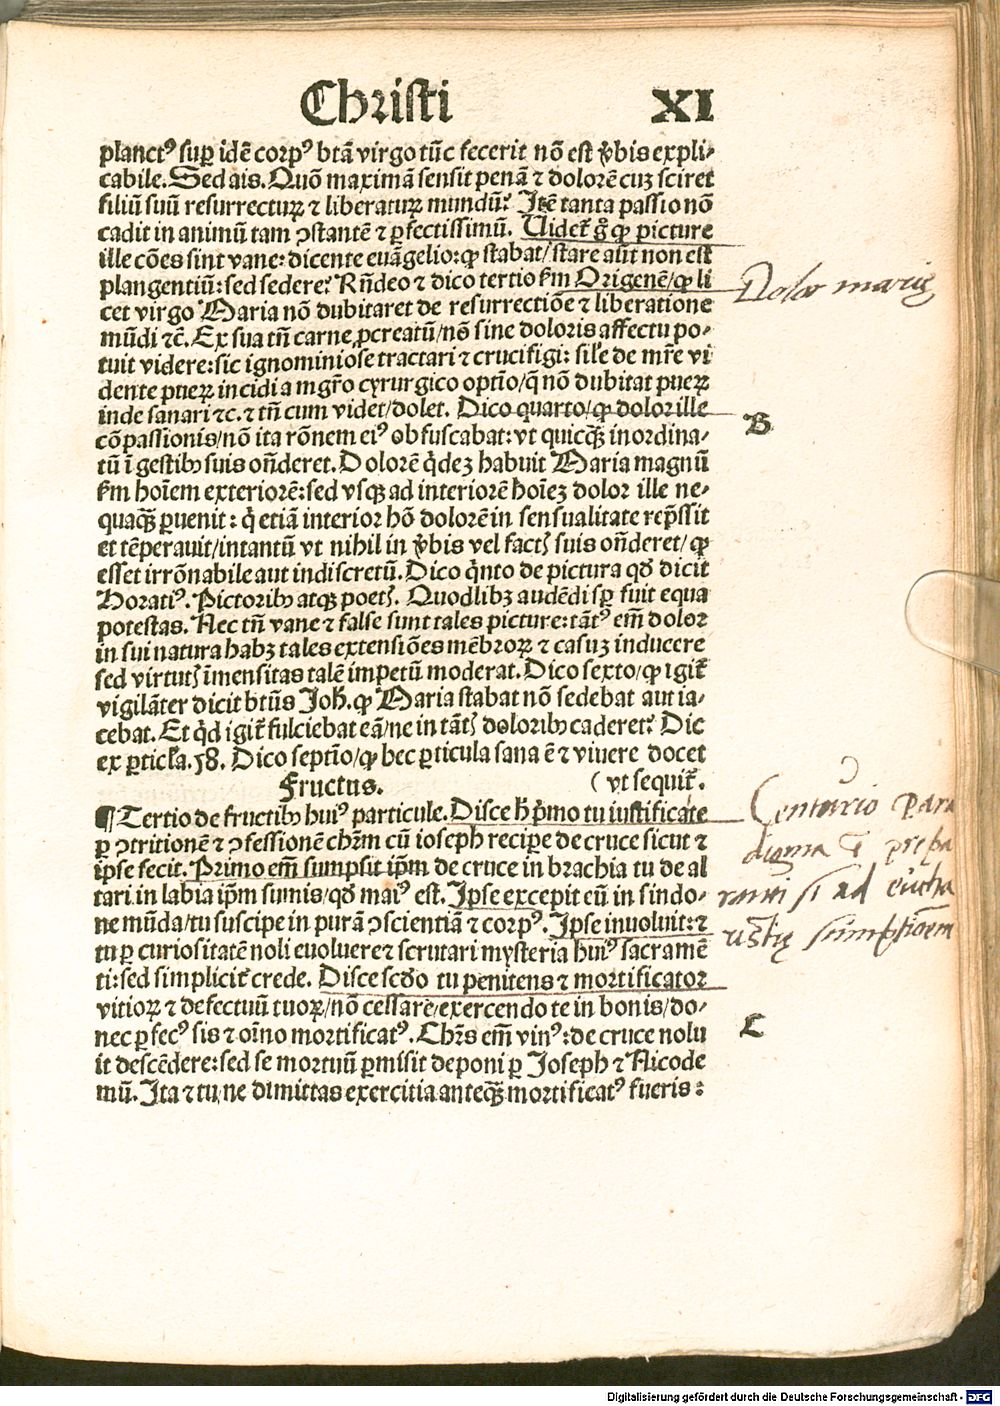 Christi
XI
planctꝰ suꝑ idē corpꝰ btā virgo tūc fecerit nō est v̄bis expli-
cabile. Sed ais. Quō maximā sensit penā ⁊ dolorē cuꝫ sciret
filiū suū resurrecturꝝ ⁊ liberaturꝝ mundū? Itē tanta passio nō
cadit in animū tam ↄstantē ⁊ ꝑfectissimū. Uidet̄ g̃ ꝙ picture
ille cōes sint vane: dicente euāgelio: ꝙ stabat/ stare aūt non est
plangentiū: sed sedere? Rñdeo ⁊ dico tertio ẜm Origenē/ ꝙ li
cet virgo Maria nō dubitaret de resurrectiōe ⁊ liberatione
mūdi ⁊c̄. Ex sua tñ carne ꝓcreatū/ nō sine doloris affectu po-
tuit videre: sic ignominiose tractari ⁊ crucifigi: sil'e de mr̄e vi
dente pueꝝ incidi a mgr̄o cyrurgico optīo/ q̄ nō dubitat pueꝝ
inde sanari ⁊c. ⁊ tñ cum videt/ dolet. Dico quarto/ ꝙ dolor ille
cōpassionis/ nō ita rōnem eiꝰ obfuscabat: vt quicq̄ꝫ inordina-
tū ī gestibꝰ suis oñderet. Dolorē q̇dez habuit Maria magnū
ẜm hoīem exteriorē: sed vsqꝫ ad interiorē hoīez dolor ille ne-
quaq̄ꝫ ꝑuenit: q̇ etiā interior hō dolorē in sensualitate rep̄ssit
et tēperauit/ intantū vt nihil in v̄bis vel factꝭ suis oñderet/ ꝙ
esset irrōnabile aut indiscretū. Dico q̇nto de pictura qd̄ dicit
Horatiꝰ. Pictoribꝰ atqꝫ poetꝭ. Quodlibꝫ audēdi sꝑ fuit equa
potestas. Nec tñ vane ⁊ false sunt tales picture: tātꝰ em̄ dolor
in sui natura habꝫ tales extensiōes mēbroꝝ ⁊ casuꝫ inducere
sed virtutꝭ īmensitas talē impetū moderat. Dico sexto/ ꝙ igit̄
vigilāter dicit btūs Joh̄. ꝙ Maria stabat nō sedebat aut ia-
cebat. Et q̇d igit̄ fulciebat eā/ ne in tātꝭ doloribꝰ caderet? Dic
ex ꝑticl'a. 18. Dico septīo/ ꝙ hec ꝑticula sana ē ⁊ viuere docet
Fructus. (vt sequit̄.
¶ Tertio de fructibꝰ huiꝰ particule. Disce h̄ p̄mo tu iustificate
ꝑ ↄtritionē ⁊ ↄfessionē chr̄m cū ioseph recipe de cruce sicut ⁊
ip̄se fecit. Primo em̄ sumpsit ip̄m de cruce in brachia tu de al
tari in labia ip̄m sumis/ qd̄ maiꝰ est. Ip̄se excepit eū in sindo-
ne mūda/ tu suscipe in purā ↄscientiā ⁊ corpꝰ. Ip̄se inuoluit: ⁊
tu ꝑ curiositatē noli euoluere ⁊ scrutari mysteria huiꝰ sacramē
ti: sed simplicit̄ crede. Disce scd̄o tu penitens ⁊ mortificator
vitioꝝ ⁊ defectuū tuoꝝ/ nō cessare/ exercendo te in bonis/ do-
nec ꝑfecꝰ sis ⁊ oīno mortificatꝰ. Chr̄s em̄ viuꝰ: de cruce nolu
it descēdere: sed se mortuū ꝑmisit deponi ꝑ Joseph ⁊ Nicode
mū. Ita ⁊ tu/ ne dimittas exercitia anteq̄ꝫ mortificatꝰ fueris:
Dolor marię
B
Centurio para
digma ē prepa
ranti si ad eucha
ristię sumptionem
C
Digitalisierung gefördert durch die Deutsche Forschungsgemeinschaft - DFG